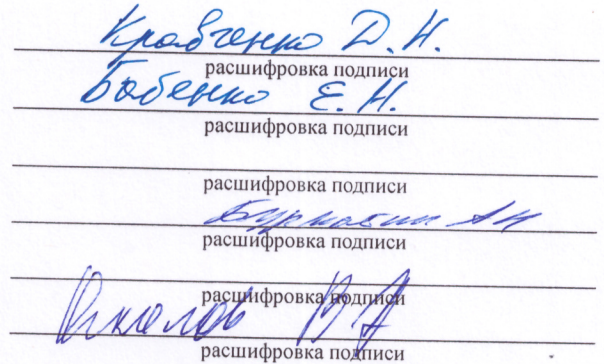 Кравченко Д. Н.
расшифровка подписи
Бабенко Е. Н.
расшифровка подписи
расшифровка подписи
А Н
расшифровка подписи
расшифровка подписи
В А
расшифровка подписи